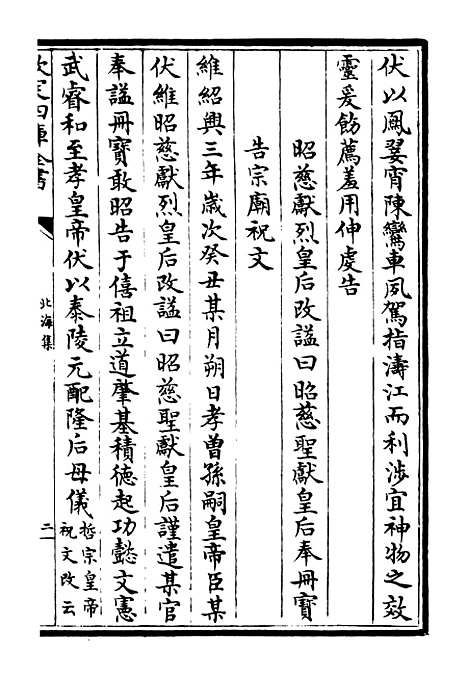 伏以鳳翣宵陳鸞車夙駕指濤江而利涉宜神物之效
靈爰飭薦羞用伸虔告
昭慈獻烈皇后改謚曰昭慈聖獻皇后奉冊寶
告宗廟祝文
維紹興三年嵗次癸丑某月朔日孝曾孫嗣皇帝臣某
伏維昭慈獻烈皇后改謚曰昭慈聖獻皇后謹遣某官
奉謚冊寶敢昭告于僖祖立道肇基積徳起功懿文憲
武睿和至孝皇帝伏以泰陵元配隆后母儀哲宗皇帝
祝文改云
欽定四庫全書
北海集
二